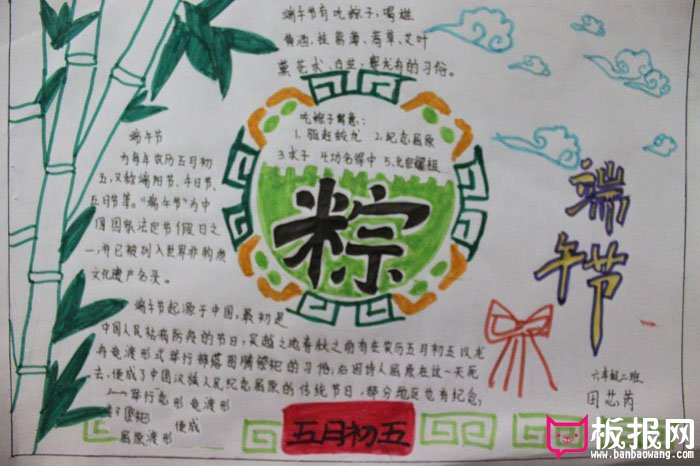 端午节有吃粽子,喝雄
黄酒,挂菖蒲、蒿草、艾叶
薰苍术、白芷,赛龙舟的习俗。
吃粽子寓意:
1.驱赶蛟龙 2.纪念屈原
3.求子 4.功名得中 5.光宗耀祖
粽
端午节
为每年农历五月初
五,又称端阳节、午日节、
五日节等。“端午节”为中
国国家法定节假日之
一,并已被列入世界非物质
文化遗产名录。
端午节起源于中国,最初是
中国人民祛病防疫的节日,吴越之地春秋之前有在农历五月初五以龙
舟竞渡形式举行部落图腾祭祀的习俗;后因诗人屈原在这一天死
去,便成了中国汉族人民纪念屈原的传统节日;部分地区也有纪念
举行 形 竞渡形
便成
屈原渡形
五月初五
端
午节
六年级二班
田芯芮
板报网
www.banbaowang.com